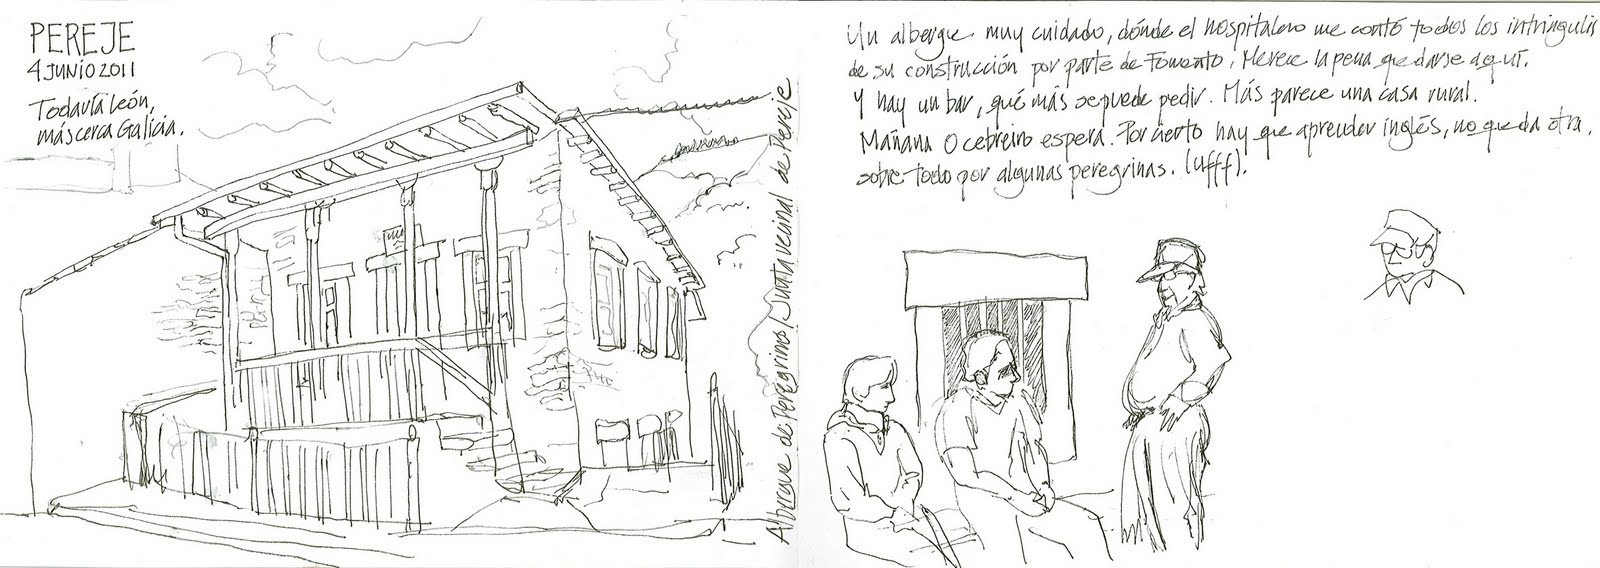 PEREJE
4 JUNIO 2011
Todavía León,
más cerca Galicia.
Albergue de Peregrinos/Junta vecinal de Pereje
Un albergue muy cuidado, dónde el hospitalero me contó todos los intríngulis
de su construcción por parte de Fomento. Merece la pena quedarse aquí.
Y hay un bar, qué más se puede pedir. Más parece una casa rural.
Mañana O cebreiro espera. Por cierto hay que aprender inglés, no queda otra,
sobre todo por algunas peregrinas. (Ufff).